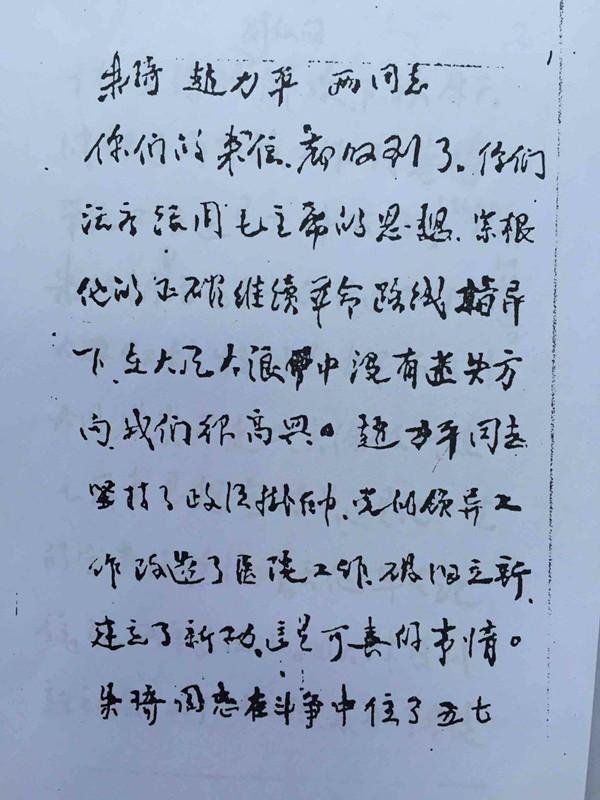 朱琦 赵力平 两同志
你们的来信、都收到了。你们
活学活用毛主席的思想、紧跟
他的正确继续革命路线指导
下、在大风大浪中没有迷失方
向、我们很高兴。赵力平同志
坚持了政治掛帅、党的领导工
作改造了医院工作、破旧立新、
建立了新功、这是可喜的事情。
朱琦同志在斗争中住了五七